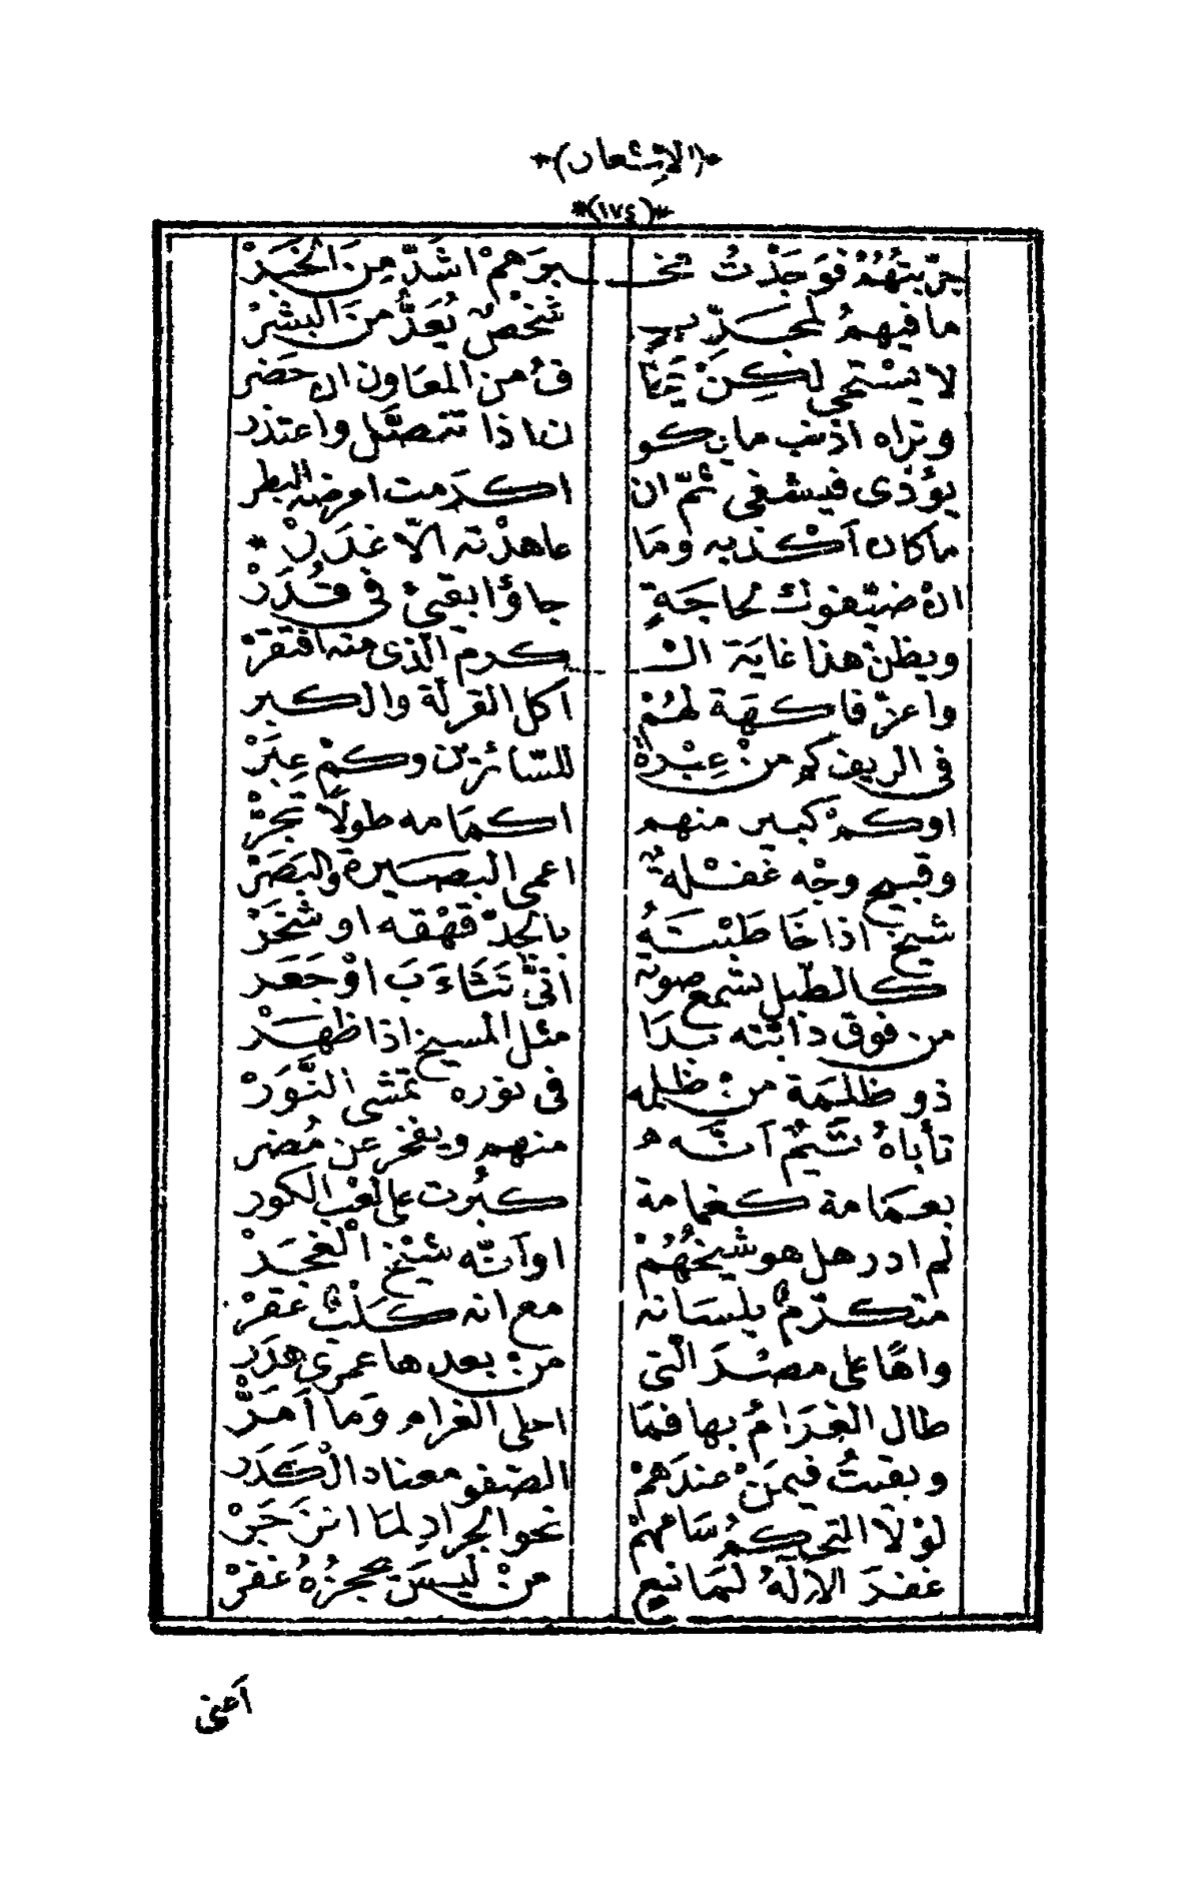 *(الاشعار)*
*(١٧٤)*
جرّبتُهُمْ فوَجَدْتُ مخـ ـبرَهمْ اشدَّ مِنَ الخبَرْ
ما فيهمُ لمجرّبٍ شخصٌ يُعَدُّ منَ البشرْ
لا يسْتحي لكِنْ يَخَا فُ من المعَاون ان حَضر
وتراه اذنب ما يكو ن اذا تنصَّل واعتذر
يؤذى فيشفى ثمّ ان اكرَمت امرضه البطر
ما كان أكْذبه ومَا عاهدْته الّا غدَرْ *
ان ضيّفوك لحاجَةٍ جاؤا بقئ في قُدَرْ
ويظنّ هذا غايَة الـ ـكرم الّذى منه افتقرْ
واعزّ فاكهَة لهُمْ اكل القرلّة والكبر
في الريف كم منْ عِبْرةً للسّائرين وكمْ عِبَرْ
اوكمْ كبير منهم اكمَامه طولًا تجُرّْ
وقبيح وجْه غفْلةٌ اعمى البصيرة والبَصَرْ
شيخ اذا خاطبْتَهُ بالجدّ قهْقه او شخَرْ
كالطّبل تسْمع صوته انّى تَثَاءَبَ اوْ جَعَر
من فوق دابّته بدَا مثل المسيخ اذا ظهَرْ
ذو ظالمَة منْ ظلمه في نوره تمشى النَّوَرْ
تأباهُ تَيْمٌ أنّه منهم ويفخر عن مُضر
بعمَامة كغمامة كبُرت على لعْب الكور
لم ادر هل هو شيخُهُمْ او أنّه شيْخ الْغجَرْ
متكرّمٌ بلسَانه مع انه كلْبٌ عَقرْ
واهًا على مصْرَ الّتى منْ بعدها عمرى هَدَرْ
طال الغرَامُ بها فمَا احلى الغرام ومَا أمَرّْ
وبقيتُ فيمَنْ عندَهمْ الصّفو معناه الْكَدَر
لوْلَا التحكمُ سَامَهمْ نحو الجرادِ لمَا انزَجَرْ
غفرَ الالٰهُ لهَانِعٍ منْ ليسَ يحجزهُ غفرْ
أعنى